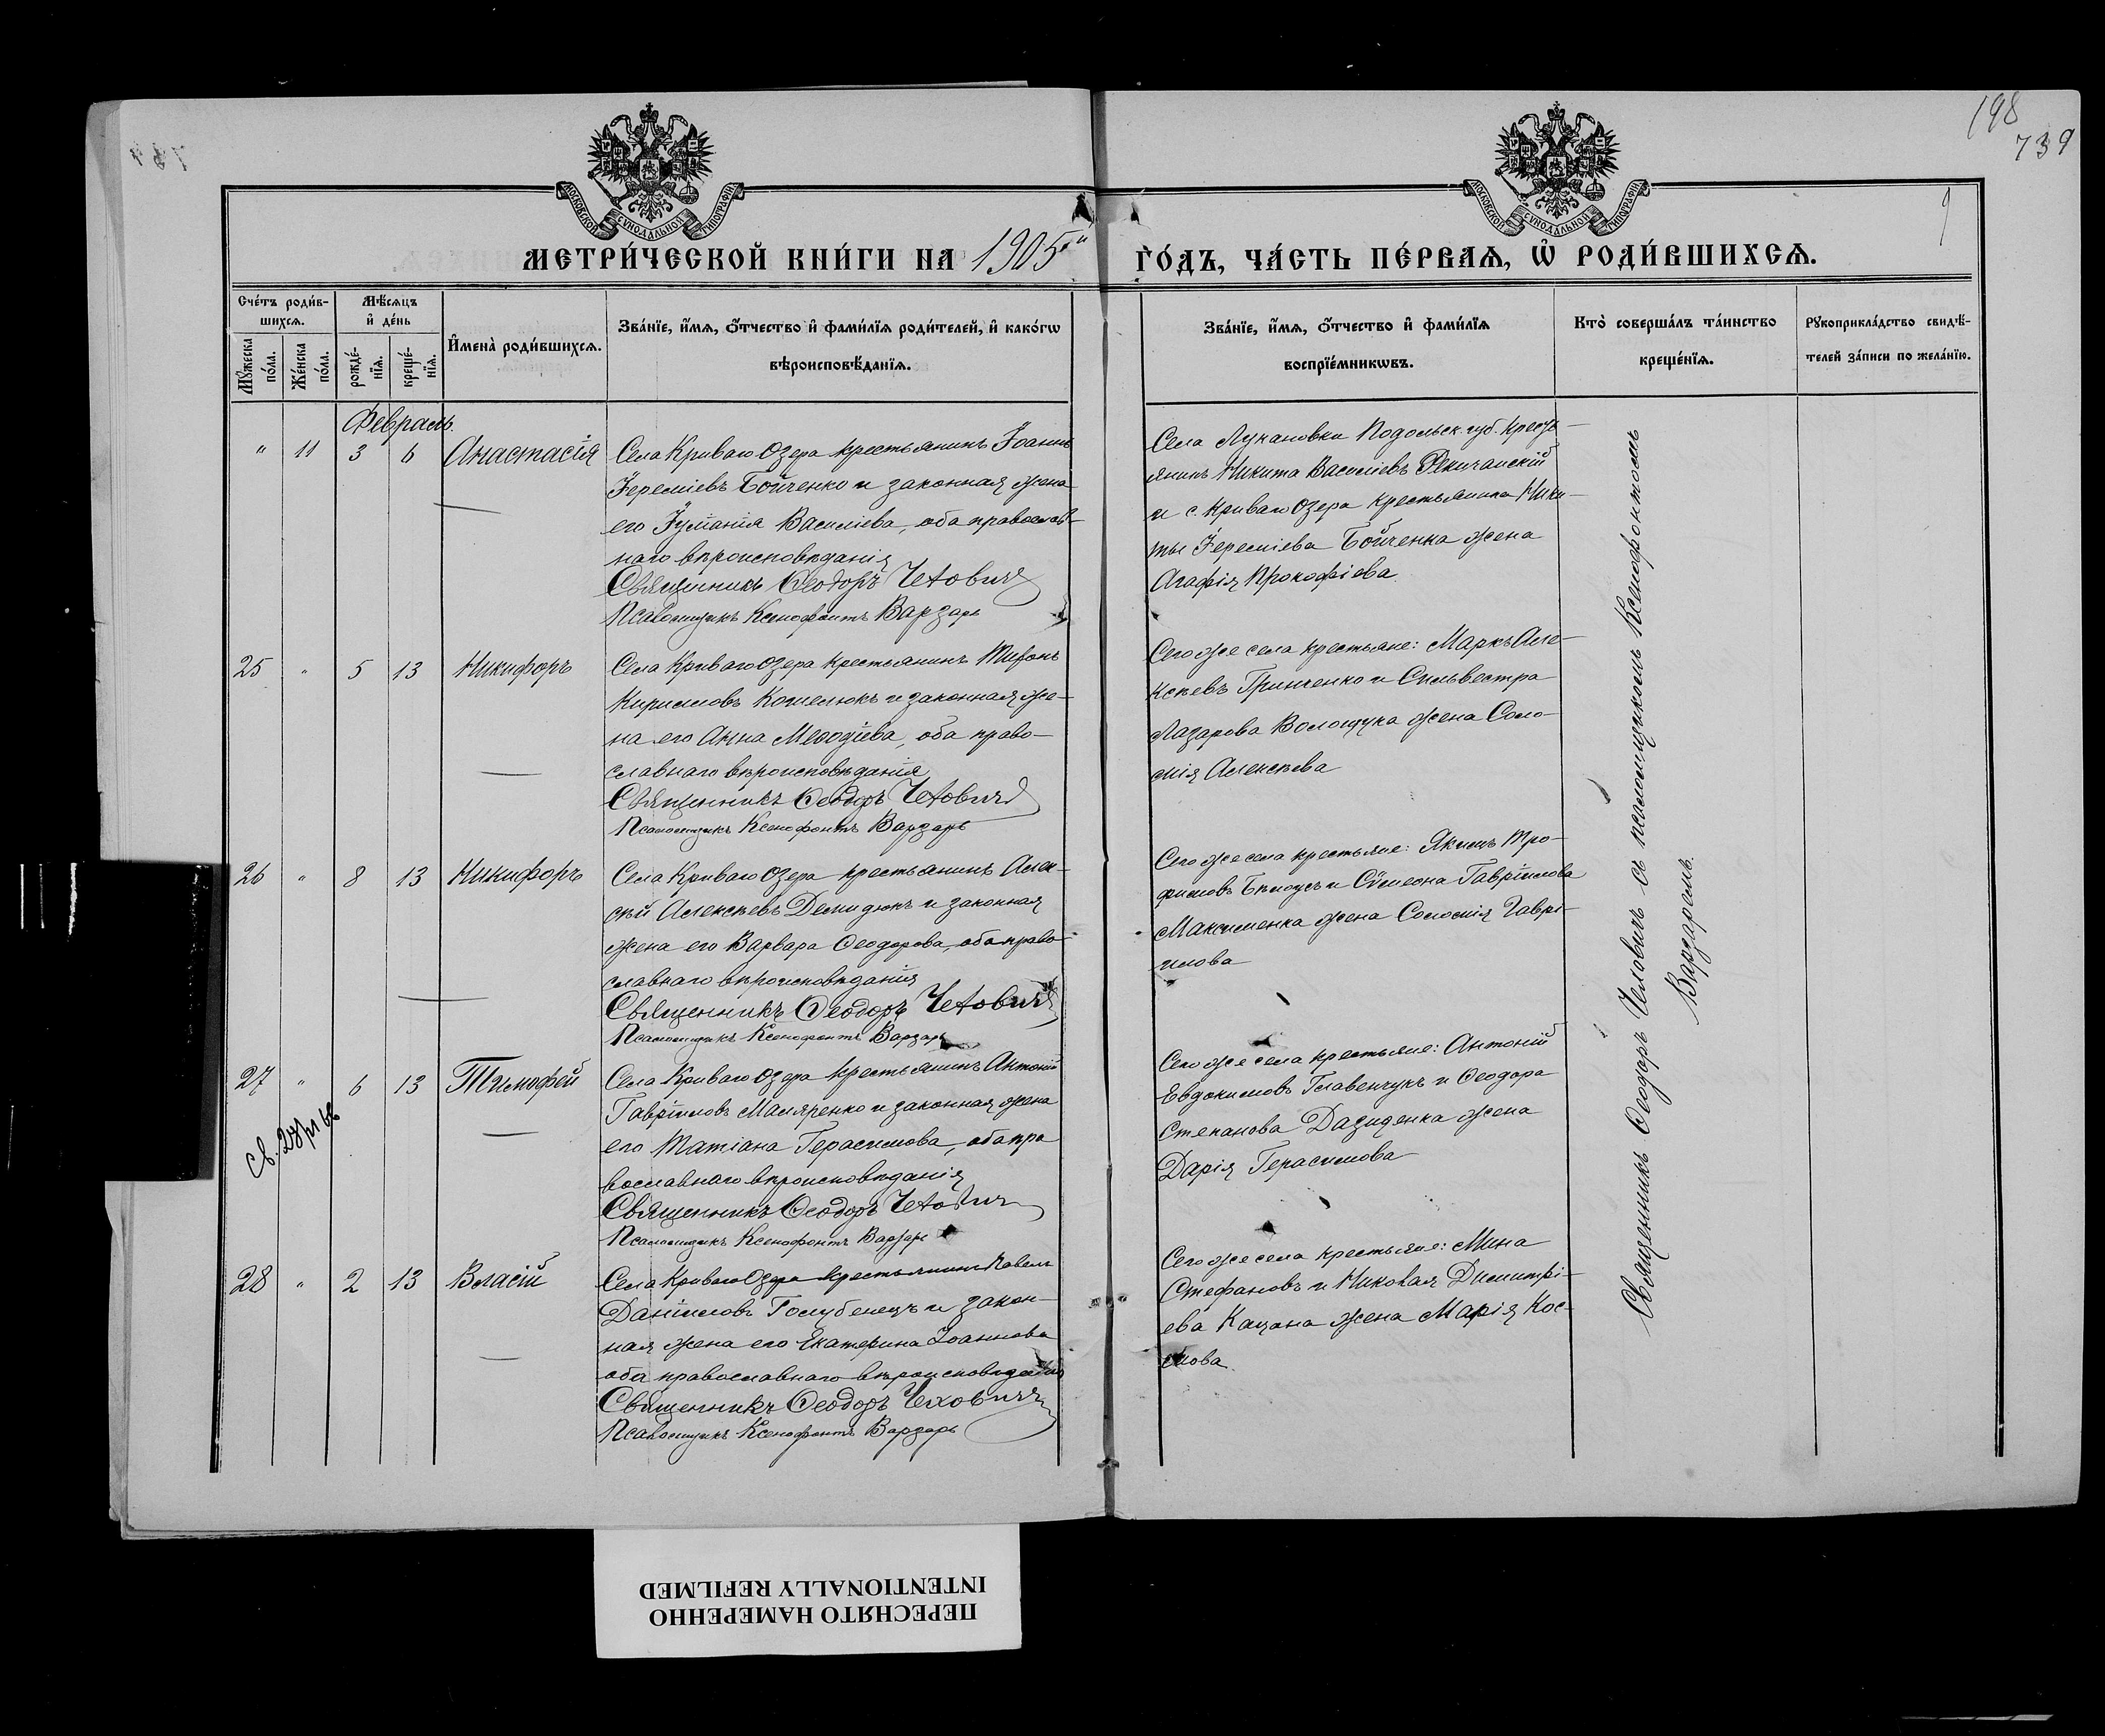 198
739
МЕТРИ́ЧЕСКОЙ КНИ́ГИ НА 1905й ГО́ДЪ, ЧА́СТЬ ПЕ́РВАѦ, Ѡ РОДИ́ВШИХСѦ.
Сче́тъ роди́в-
шихсѧ.
Мѣ́сѧцъ
и҆ де́нь
Мꙋ́жеска по́ла.
Же́нска по́ла.
рожде́-нїѧ.
креще́-нїѧ.
И҆мена̀ роди́вшихсѧ.
Зва́нїе, и҆́мѧ, ѻ҆́тчество и҆ фами́лїѧ роди́телей, и҆ како́гѡ
вѣроисповѣ́данїѧ.
Зва́нїе, и҆́мѧ, ѻ҆́тчество и҆ фами́лїѧ
воспрїе́мникѡвъ.
Кто̀ соверша́лъ та́инство
креще́нїѧ.
Рꙋкоприкла́дство свидѣ́-
телей за́писи по жела́нїю.
Февраль.
" 11 3 6 Анастасія
Села Криваго Озера крестьянинъ Іоаннъ
Іереміевъ Бойченко и законная жена
его Іуліанія Василіева, оба православ-
наго вѣроисповѣданія
Священникъ Ѳеодоръ Чехович
Псаломщикъ Ксенофонтъ Варзарь
Села Лукановки Подольск. губ. кресть-
янинъ Никита Василіевъ
и с. Криваго Озера крестьянина Ники-
ты Іереміева Бойченка жена
Агафія Прокофіева
25 " 5 13 Никифоръ
Села Криваго Озера крестьянинъ
Кирилловъ Кошелюкъ и законная же-
на его Анна Меѳодіева, оба право-
славнаго вѣроисповѣданія
Священникъ Ѳеодоръ Чехович
Псаломщикъ Ксенофонтъ Варзарь
Сего же села крестьяне: Маркъ Але-
ксѣевъ Гринченко и Сильвестра
Лазарова Волощука жена Соло-
мія Алексѣева
26 " 8 13 Никифоръ
Села Криваго Озера крестьянинъ Алек-
сѣй Алексѣевъ Демидюкъ и законная
жена его Варвара Ѳеодорова, оба право-
славнаго вѣроисповѣданія
Священникъ Ѳеодоръ Чехович
Псаломщикъ Ксенофонтъ Варзарь
Сего же села крестьяне: Якимъ Тро-
фимовъ Бѣлоусъ и Сѵмеона Гавріилова
Максименка жена Соломія Гаврі-
илова
27 " 6 13 Тимофей
Села Криваго Озера крестьянинъ Антоній
Гавріиловъ Маляренко и законная жена
его Татіана Герасимова, оба пра
вославнаго вѣроисповѣданія
Священникъ Ѳеодоръ Чехович
Псаломщикъ Ксенофонтъ Варзарь
Сего же села крестьяне: Антоній
Евдокимовъ Главенчукъ и Ѳеодора
Степанова Давиденка жена
Дарія Герасимова
28 " 2 13 Власій
Села Криваго Озера крестьянинъ Павелъ
Даніиловъ Голубенецъ и закон-
ная жена его Екатерина Іоаннова
оба православнаго вѣроисповѣданія
Священникъ Ѳеодоръ Чехович
Псаломщикъ Ксенофонтъ Варзарь
Сего же села крестьяне: Мина
Стефановъ и Николая Димитрі-
ева Кацана жена Марія Кос-
мова
Священникъ Ѳеодоръ Чеховичъ съ псаломщикомъ Ксенофонтомъ
Варзаремъ.
ПЕРЕСНЯТО НАМЕРЕННО
INTENTIONALLY REFILMED